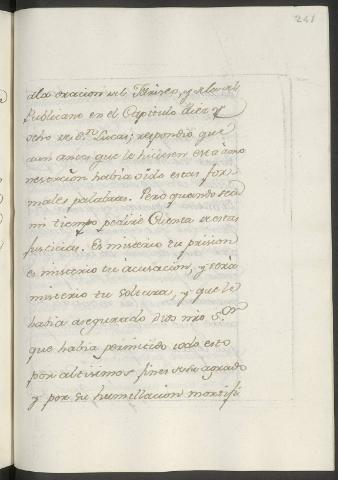 241
a la oracion del Fariseo, y a la del
Publicano en el Capitulo diez y
ocho de Sn. Lucas; respondio que
aun antes que le hiciesen esta amo
nestacion habia oido estas for
males palabras. Pero quando sea
mi tiempo pediré Cuenta de estas
Justicias. Es misterio tu prision
es misterio tu acusacion, y será
misterio tu soltura, y que le
habia asegurado Dios nro Sor.
que habia permitido todo esto
por altisimos fines de su agrado
y por su humillacion mortifi